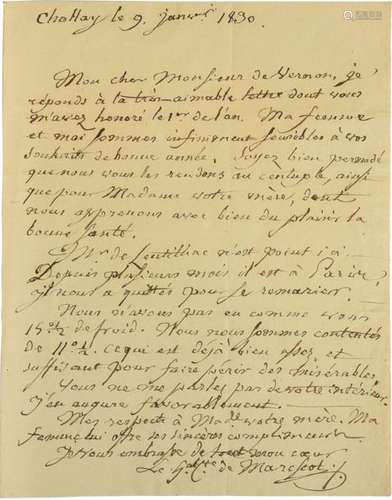 Challay le 9. janvier 1830.
Mon cher Monsieur de Vernon, je
réponds à la très-aimable lettre dont vous
m'avez honoré le 1er de l'an. Ma femme
et moi sommes infiniment sensibles à vos
souhaits de bonne année. Soyez bien persuadé
que nous vous les rendons au centuple, ainsi
que pour Madame votre mère, dont
nous apprenons avec bien du plaisir la
bonne santé.
Mr de Lentilliac n'est point ici.
Depuis plusieurs mois il est à Paris.
il nous a quittés pour se remarier.
Nous n'avons pas eu comme vous
15 o/2 de froid. Nous nous sommes contentés
de 11 o 1/2. ce qui est déjà bien assez, et
suffisant pour faire périr des misérables.
Vous ne me parlez pas de votre intérieur.
J'en augure favorablement.
Mes respects à Made votre mère. Ma
femme lui offre ses sincères compliments.
Je vous embrasse de tout mon cœur
Le Gal Cte de Marescot.